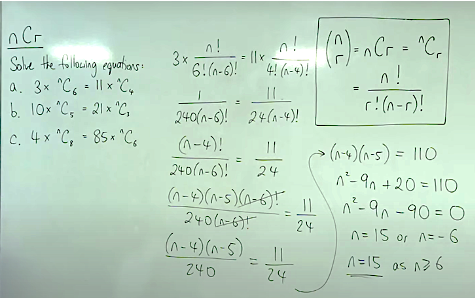 nCr
Solve the following equations:
a. 3 × ⁿC₆ = 11 × ⁿC₄
b. 10 × ⁿC₅ = 21 × ⁿC₃
c. 4 × ⁿC₈ = 85 × ⁿC₆
3 × n!/6!(n-6)! = 11 × n!/4!(n-4)!
1/240(n-6)! = 11/24(n-4)!
(n-4)!/240(n-6)! = 11/24
(n-4)(n-5)(n-6)!/240(n-6)! = 11/24
(n-4)(n-5)/240 = 11/24
(n r) = nCr = ⁿCᵣ
= n!/r!(n-r)!
→ (n-4)(n-5) = 110
n²-9n+20 = 110
n²-9n-90 = 0
n=15 or n=-6
n=15 as n≥6